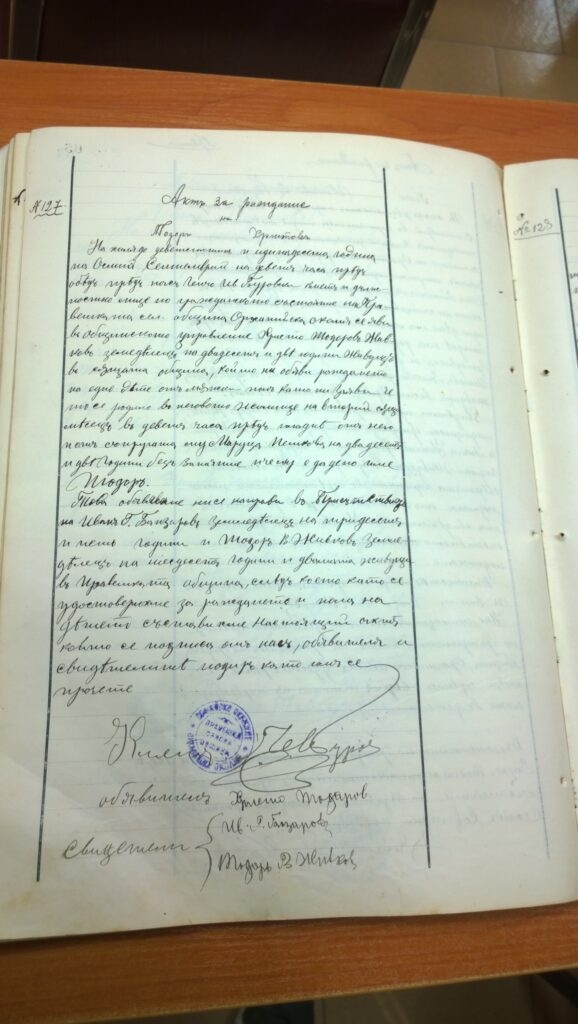 № 127
Актъ за раждание
на
Тодоръ Христовъ
На хиляда деветстотинъ и единадесета година
на Осмий Септемврий на деветь часа прѣдъ
обѣдъ прѣдъ насъ Генчо Цв. кметъ и длъж-
ностно лице по гражданското състояние на Пра-
вешката сел. община Орханийска околия се яви
въ общинското управление Христо Тодоровъ Жив-
ковъ земледѣлецъ на двадесеть и двѣ години живущъ
въ същата община, който ни обяви раждането
на едно дѣте отъ мѫжки полъ като ни
се родило въ неговото жилище на вторий
мѣсецъ въ деветь часа прѣдъ пладнѣ отъ него
и отъ съпругата му Маруца Пенкова на двадесеть
и двѣ години безъ занятие нему е дадено име
Тодоръ.
Това обявление ни се направи въ присѫтствието
на Иванъ Г. Банзаровъ земледѣлецъ на тридесеть
и петь години и Тодоръ В. Живковъ земле-
дѣлецъ на шесдесеть години и двамата живущи
въ Правешката община, слѣдъ което като се
удостоверихме за раждането и пола на
дѣтето съставихме настоящий актъ
който се подписа отъ насъ, обявителя и
свидѣтелитѣ подиръ като имъ се
прочете
Кметъ:
обявителъ Христо Тодоровъ
Ив. Г. Банзаровъ
свидетели
Тодоръ В. Живков
№ 128